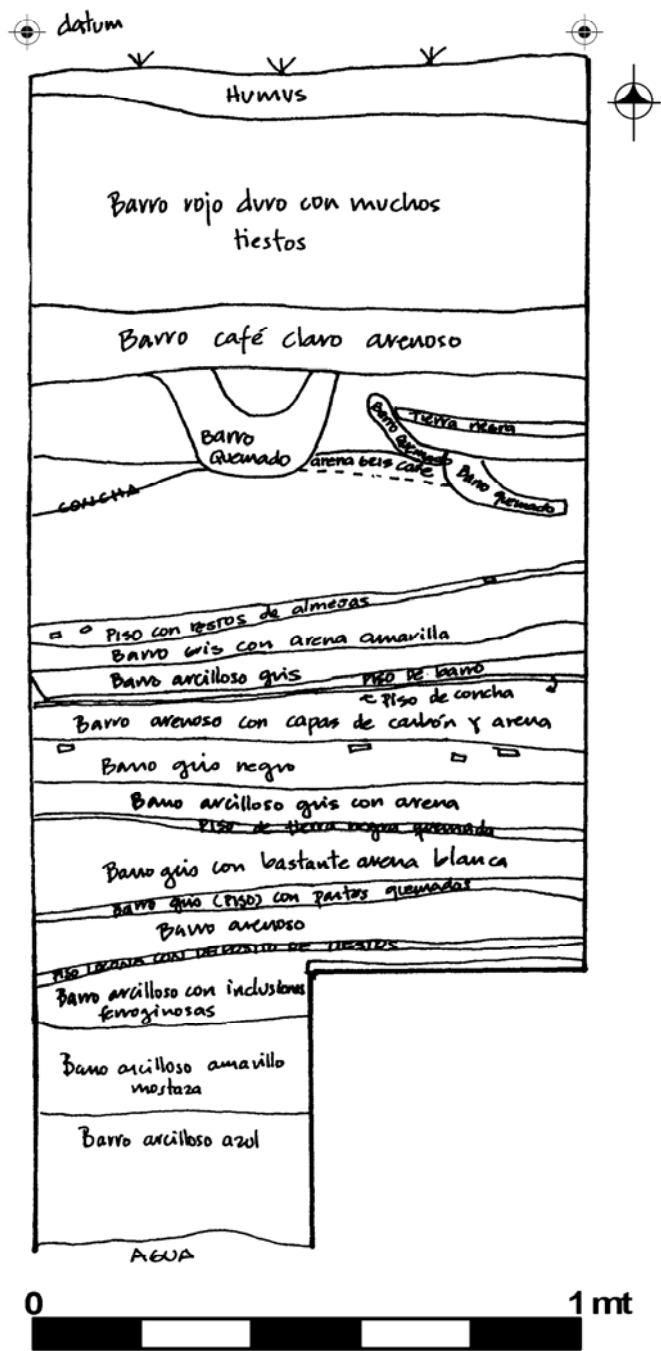 datum
HUMUS
Barro rojo duro con muchos
tiestos
Barro café claro arenoso
Barro
Quemado
Barro quemado
Tierra negra
arena beis café
Barro quemado
CONCHA
Piso con restos de almejas
Barro gris con arena amarilla
Barro arcilloso gris
Piso de barro
Piso de concha
Barro arenoso con capas de carbón y arena
Barro gris negro
Barro arcilloso gris con arena
Piso de tierra negra quemada
Barro gris con bastante arena blanca
Barro gris (PISO) con partes quemadas
Barro arenoso
PISO LOCONA CON DEPOSITO DE TIESTOS
Barro arcilloso con inclusiones
ferroginosas
Barro arcilloso amarillo
mostaza
Barro arcilloso azul
AGUA
0 1 mt